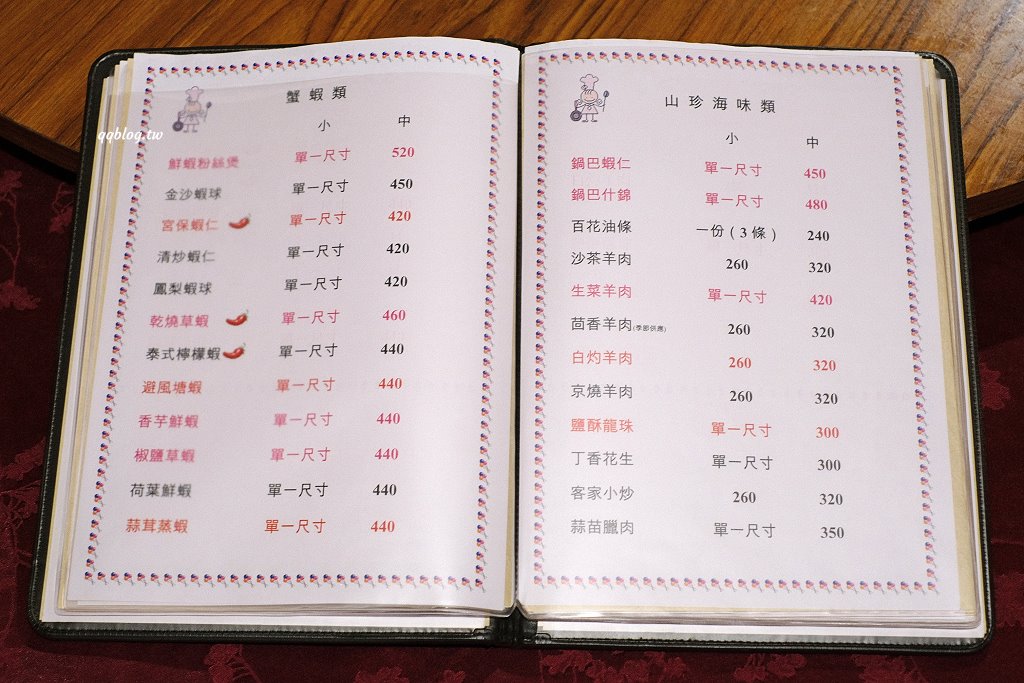 qqblog.tw
蟹蝦類
小 中
鮮蝦粉絲煲 單一尺寸 520
金沙蝦球 單一尺寸 450
宮保蝦仁 單一尺寸 420
清炒蝦仁 單一尺寸 420
鳳梨蝦球 單一尺寸 420
乾燒草蝦 單一尺寸 460
泰式檸檬蝦 單一尺寸 440
避風塘蝦 單一尺寸 440
香芋鮮蝦 單一尺寸 440
椒鹽草蝦 單一尺寸 440
荷葉鮮蝦 單一尺寸 440
蒜茸蒸蝦 單一尺寸 440
山珍海味類
小 中
鍋巴蝦仁 單一尺寸 450
鍋巴什錦 單一尺寸 480
百花油條 一份(3條) 240
沙茶羊肉 260 320
生菜羊肉 單一尺寸 420
茴香羊肉(季節供應) 260 320
白灼羊肉 260 320
京燒羊肉 260 320
鹽酥龍珠 單一尺寸 300
丁香花生 單一尺寸 300
客家小炒 260 320
蒜苗臘肉 單一尺寸 350